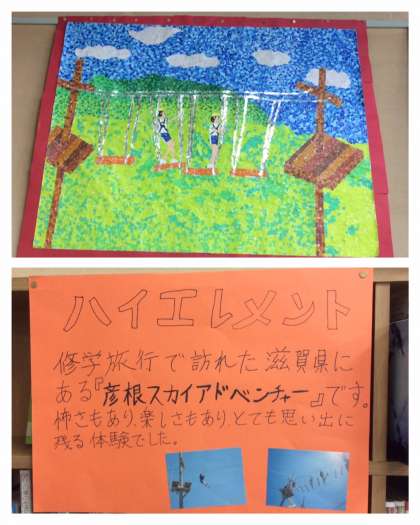 ハイエレメント
修学旅行で訪れた滋賀県に
ある『彦根スカイアドベンチャー』です。
怖さもあり、楽しさもあり、とても思い出に
残る体験でした。